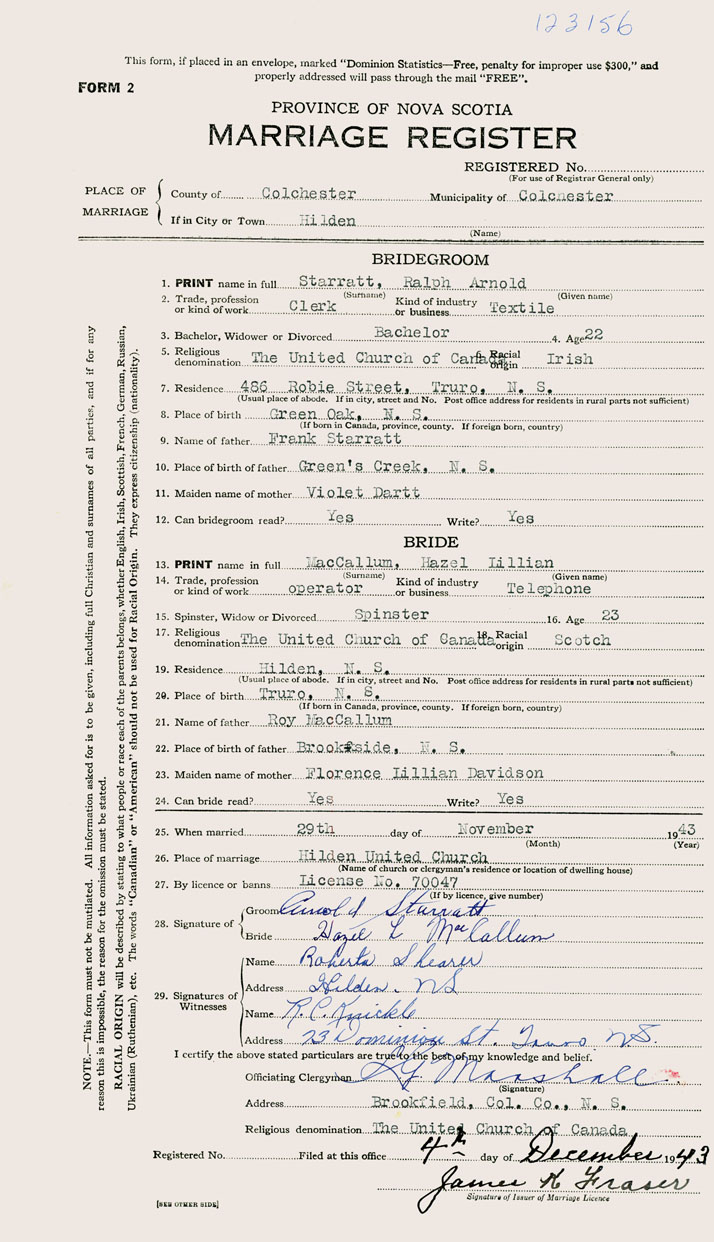 123156
This form, if placed in an envelope, marked "Dominion Statistics—Free, penalty for improper use $300," and
properly addressed will pass through the mail "FREE".
FORM 2
PROVINCE OF NOVA SCOTIA
MARRIAGE REGISTER
REGISTERED No.
(For use of Registrar General only)
PLACE OF MARRIAGE
County of Colchester Municipality of Colchester
If in City or Town Hilden
(Name)
BRIDEGROOM
1. PRINT name in full Starratt, Ralph Arnold
(Surname) (Given name)
2. Trade, profession or kind of work Clerk Kind of industry or business Textile
3. Bachelor, Widower or Divorced Bachelor 4. Age 22
5. Religious denomination The United Church of Canada 6. Racial origin Irish
7. Residence 486 Robie Street, Truro, N. S.
(Usual place of abode. If in city, street and No. Post office address for residents in rural parts not sufficient)
8. Place of birth Green Oak, N. S.
(If born in Canada, province, county. If foreign born, country)
9. Name of father Frank Starratt
10. Place of birth of father Green's Creek, N. S.
11. Maiden name of mother Violet Dartt
12. Can bridegroom read? Yes Write? Yes
BRIDE
13. PRINT name in full MacCallum, Hazel Lillian
(Surname) (Given name)
14. Trade, profession or kind of work operator Kind of industry or business Telephone
15. Spinster, Widow or Divorced Spinster 16. Age 23
17. Religious denomination The United Church of Canada 18. Racial origin Scotch
19. Residence Hilden, N. S.
(Usual place of abode. If in city, street and No. Post office address for residents in rural parts not sufficient)
20. Place of birth Truro, N. S.
(If born in Canada, province, county. If foreign born, country)
21. Name of father Roy MacCallum
22. Place of birth of father Brookside, N. S.
23. Maiden name of mother Florence Lillian Davidson
24. Can bride read? Yes Write? Yes
25. When married 29th day of November 1943
(Month) (Year)
26. Place of marriage Hilden United Church
(Name of church or clergyman's residence or location of dwelling house)
27. By licence or banns License No. 70047
(If by licence, give number)
28. Signature of
Groom Arnold Starratt
Bride Hazel L MacCallum
29. Signatures of Witnesses
Name Roberta Shearer
Address Hilden. NS
Name R. C. Knickle
Address 73 Dominion St. Truro. N.S.
I certify the above stated particulars are true to the best of my knowledge and belief.
Officiating Clergyman Marshall
(Signature)
Address Brookfield, Col. Co., N. S.
Religious denomination The United Church of Canada
Registered No. Filed at this office 4th day of December 1943
James K Fraser
Signature of Issuer of Marriage Licence
[SEE OTHER SIDE]
NOTE.—This form must not be mutilated. All information asked for is to be given, including full Christian and surnames of all parties, and if for any
reason this is impossible, the reason for the omission must be stated.
RACIAL ORIGIN will be described by stating to what people or race each of the parents belongs, whether English, Irish, Scottish, French, German, Russian,
Ukrainian (Ruthenian), etc. The words "Canadian" or "American" should not be used for Racial Origin. They express citizenship (nationality).